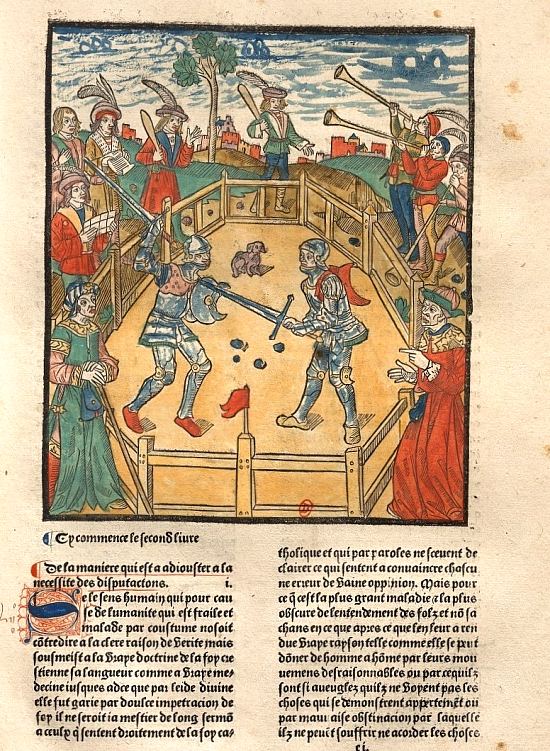 Cy commence le second livre
De la maniere qui est a adiouster a la
necessite des disputacions. i.
Se le sens humain qui pour cau
se de lumanite qui est fraile et
malade par coustume nosoit
cõtredire a la clere raison de verite mais
sousmeist a la vraye doctrine de la foy cre
stienne sa langueur comme a vraye me
decine iusques adce que par leide divine
elle fut garie par doulce impetracion de
foy il ne seroit ia mestier de long sermõ
a ceulx qui sentent droitement de la foy ca
tholique et qui par paroles ne scevent de
clairer ce qui sentent a convaincre chascu
ne erreur de vaine oppinion. Mais pour
ce q̃ cest la plus grant maladie et la plus
obscure de lentendement des folz et nõ sa
chans en ce que apres ce que len leur a ren
due vraye rayson telle comme elle se peut
dõner de homme a hõme par leurs mou
vemens desraisonnables ou par ce quilz
sont si aveuglez quilz ne voyent pas les
choses qui se demonstrent appertemẽt ou
par mauvaise obstinacion par laquelle
ilz ne peuvẽt souffrir ne acorder les choses